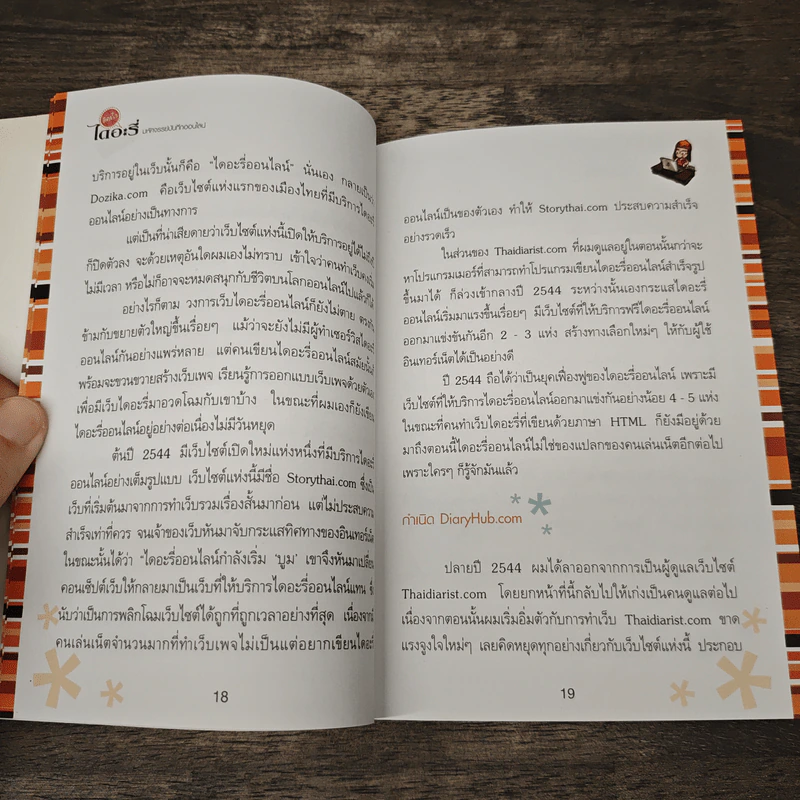 ไดอะรี่ มหัศจรรย์บันทึกออนไลน์
บริการอยู่ในเว็บนั้นก็คือ "ไดอะรี่ออนไลน์" นั่นเอง กลายเป็นว่า
Dozika.com คือเว็บไซต์แห่งแรกของเมืองไทยที่มีบริการไดอะรี่
ออนไลน์อย่างเป็นทางการ
แต่เป็นที่น่าเสียดายว่าเว็บไซต์แห่งนี้เปิดให้บริการอยู่ได้ไม่
ก็ปิดตัวลง จะด้วยเหตุอันใดผมเองไม่ทราบ เข้าใจว่าคนทำเว็บคง
ไม่มีเวลา หรือไม่ก็อาจจะหมดสนุกกับชีวิตบนโลกออนไลน์ไปแล้วก็ได้
อย่างไรก็ตาม วงการเว็บไดอะรี่ออนไลน์ก็ยังไม่ตาย ตรงกัน
ข้ามกับขยายตัวใหญ่ขึ้นเรื่อยๆ แม้ว่าจะยังไม่มีผู้ทำเซอร์วิสไดอะรี่
ออนไลน์กันอย่างแพร่หลาย แต่คนเขียนไดอะรี่ออนไลน์สมัยนั้นก็
พร้อมจะขวนขวายสร้างเว็บเพจ เรียนรู้การออกแบบเว็บเพจด้วยตัวเอง
เพื่อมีเว็บไดอะรี่มาอวดโฉมกับเขาบ้าง ในขณะที่ผมเองก็ยังเขียน
ไดอะรี่ออนไลน์อยู่อย่างต่อเนื่องไม่มีวันหยุด
ต้นปี 2544 มีเว็บไซต์เปิดใหม่แห่งหนึ่งที่มีบริการไดอะรี่
ออนไลน์อย่างเต็มรูปแบบ เว็บไซต์แห่งนี้มีชื่อ Storythai.com ซึ่งเป็น
เว็บที่เริ่มต้นมาจากการทำเว็บรวมเรื่องสั้นมาก่อน แต่ไม่ประสบความ
สำเร็จเท่าที่ควร จนเจ้าของเว็บหันมาจับกระแสทิศทางของอินเทอร์เน็ต
ในขณะนั้นได้ว่า "ไดอะรี่ออนไลน์กำลังเริ่ม 'บูม' เขาจึงหันมาเปลี่ยน
คอนเซ็ปต์เว็บให้กลายมาเป็นเว็บที่ให้บริการไดอะรี่ออนไลน์แทน ซึ่ง
นับว่าเป็นการพลิกโฉมเว็บไซต์ได้ถูกที่ถูกเวลาอย่างที่สุด เนื่องจากมี
คนเล่นเน็ตจำนวนมากที่ทำเว็บเพจไม่เป็นแต่อยากเขียนไดอะรี่
18
ออนไลน์เป็นของตัวเอง ทำให้ Storythai.com ประสบความสำเร็จ
อย่างรวดเร็ว
ในส่วนของ Thaidiarist.com ที่ผมดูแลอยู่ในตอนนั้นกว่าจะ
หาโปรแกรมเมอร์ที่สามารถทำโปรแกรมเขียนไดอะรี่ออนไลน์สำเร็จรูป
ขึ้นมาได้ ก็ล่วงเข้ากลางปี 2544 ระหว่างนั้นเองกระแสไดอะรี่
ออนไลน์เริ่มมาแรงขึ้นเรื่อยๆ มีเว็บไซต์ที่ให้บริการฟรีไดอะรี่ออนไลน์
ออกมาแข่งขันกันอีก 2 - 3 แห่ง สร้างทางเลือกใหม่ๆ ให้กับผู้ใช้
อินเทอร์เน็ตได้เป็นอย่างดี
ปี 2544 ถือได้ว่าเป็นยุคเฟื่องฟูของไดอะรี่ออนไลน์ เพราะมี
เว็บไซต์ที่ให้บริการไดอะรี่ออนไลน์ออกมาแข่งกันอย่างน้อย 4 - 5 แห่ง
ในขณะที่คนทำเว็บไดอะรี่ที่เขียนด้วยภาษา HTML ก็ยังมีอยู่ด้วย
มาถึงตอนนี้ไดอะรี่ออนไลน์ไม่ใช่ของแปลกของคนเล่นเน็ตอีกต่อไป
เพราะใครๆ ก็รู้จักมันแล้ว
กำเนิด DiaryHub.com
ปลายปี 2544 ผมได้ลาออกจากการเป็นผู้ดูแลเว็บไซต์
Thaidiarist.com โดยยกหน้าที่นี้กลับไปให้เก่งเป็นคนดูแลต่อไป
เนื่องจากตอนนั้นผมเริ่มอิ่มตัวกับการทำเว็บ Thaidiarist.com ขาด
แรงจูงใจใหม่ๆ เลยคิดหยุดทุกอย่างเกี่ยวกับเว็บไซต์แห่งนี้ ประกอบ
19